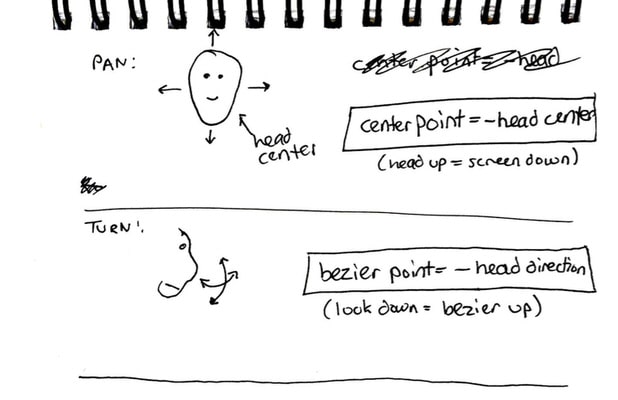 PAN:
center point = -head
head center
center point = -head center
(head up = screen down)
TURN:
bezier point = - head direction
(look down = bezier up)